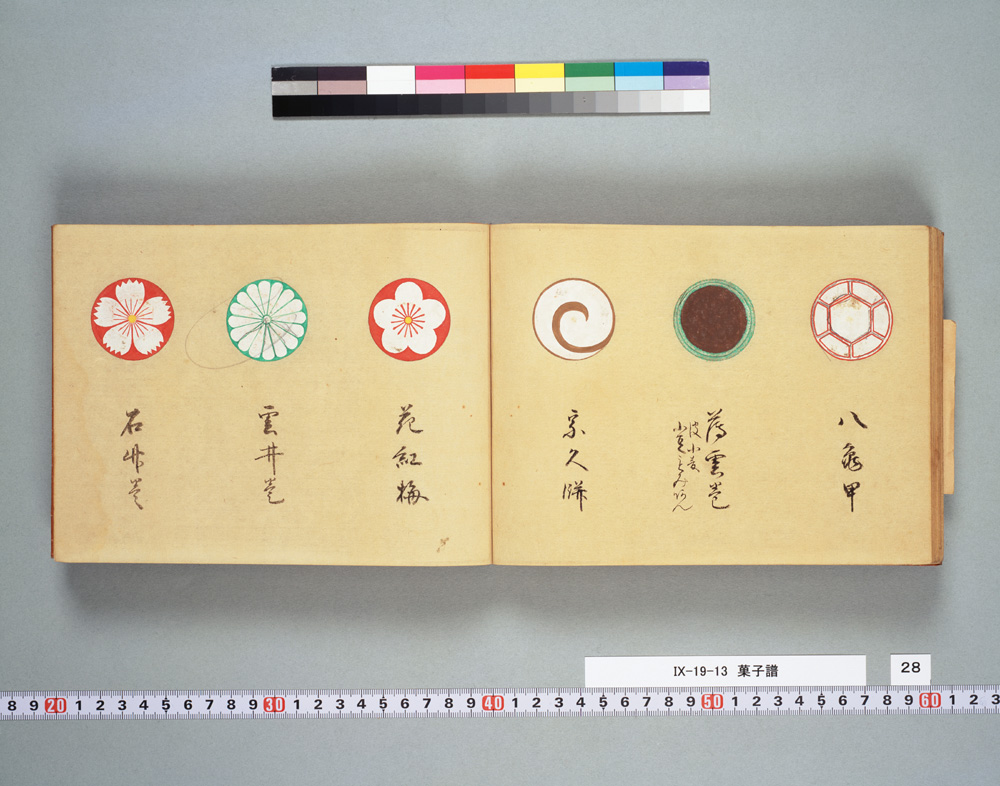 八亀甲
薄雲巻
皮小麦
宗久餅
花紅梅
雲井巻
石竹巻
IX-19-13 菓子譜
28
8 9 20 1 2 3 4 5 6 7 8 9 30 1 2 3 4 5 6 7 8 9 40 1 2 3 4 5 6 7 8 9 50 1 2 3 4 5 6 7 8 9 60 1 2 3